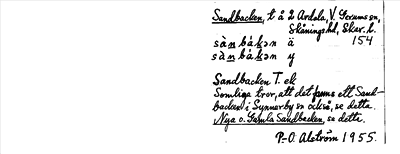 Sandbacken, t å 2 Ardala, V. Gerums sn,
Skånings hd, Skar. l.
154
sàn bákən ä
sàn bákən y
Sandbacken T. ek
Somliga tror, att det finns ett Sand-
backen i Synnerby sn också, se detta.
Nya o. Gamla Sandbacken, se detta.
P.-O. Alström 1955.